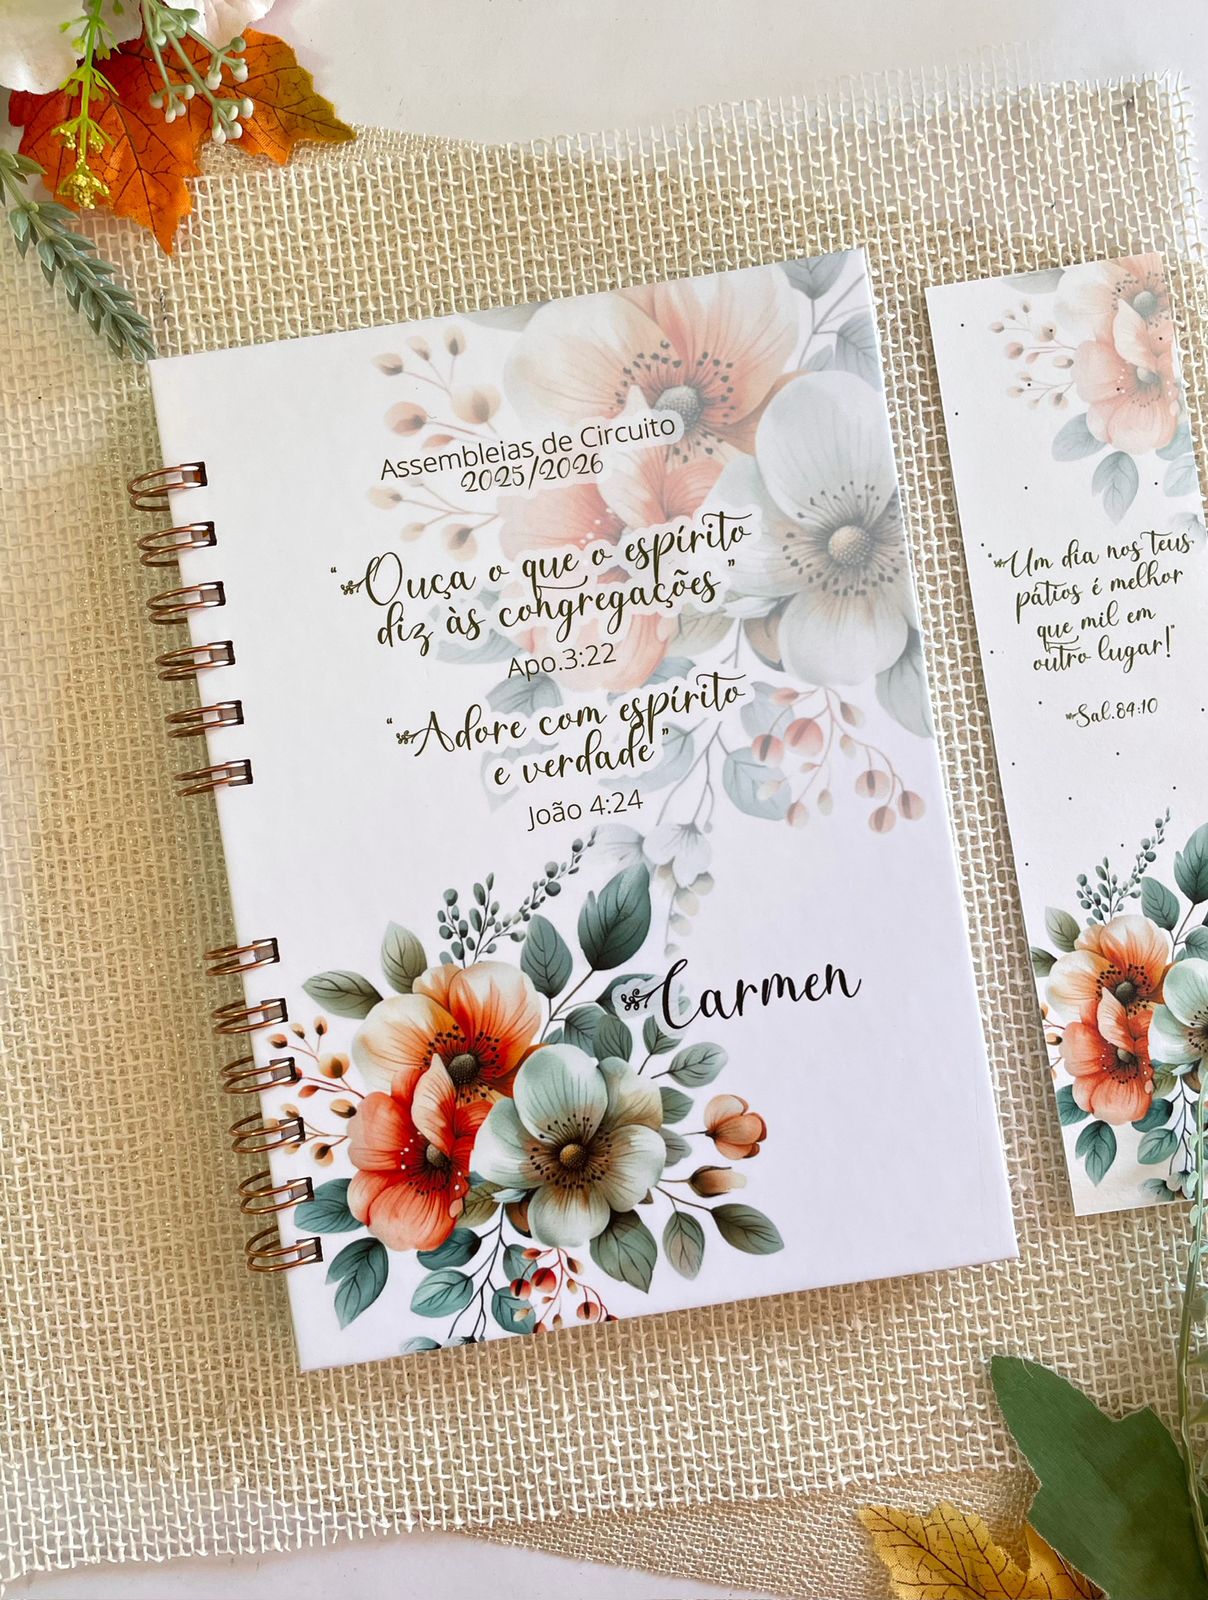 Assembleias de Circuito
2025/2026
"Ouça o que o espírito
diz às congregações"
Apo.3:22
"Adore com espírito
e verdade"
João 4:24
Carmen
"Um dia nos teus
pátios é melhor
que mil em
outro lugar!"
Sal.84:10